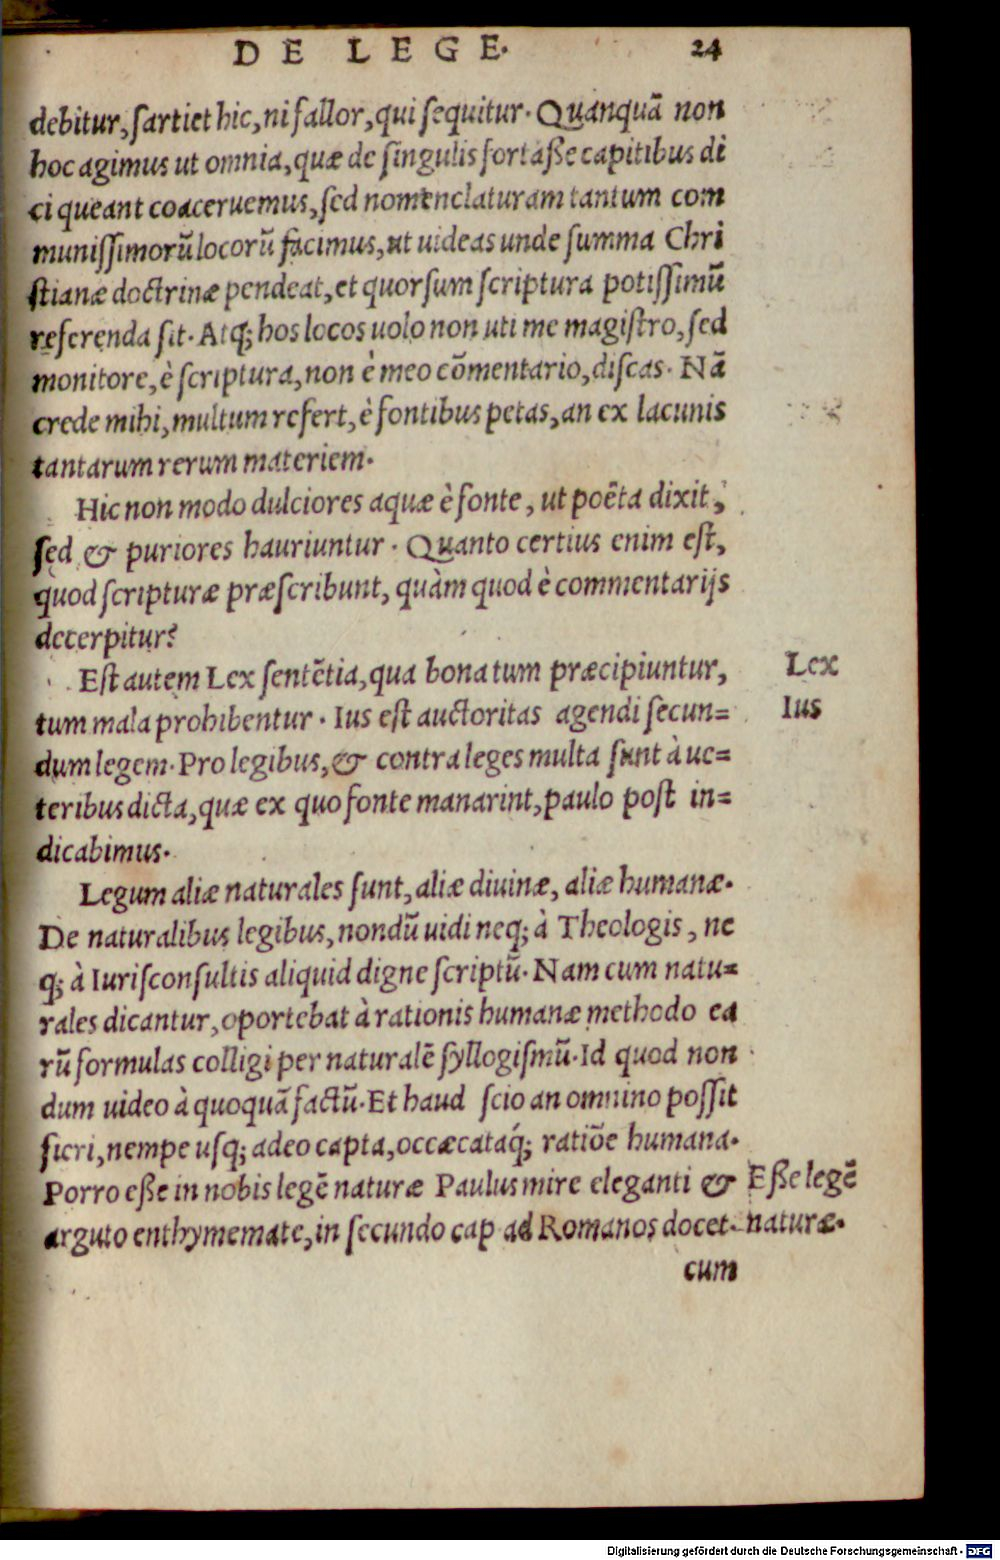 DE LEGE. 24
debitur, sartiet hic, ni fallor, qui sequitur. Quanquā non
hoc agimus ut omnia, quæ de singulis fortaße capitibus di
ci queant coaceruemus, sed nomenclaturam tantum com
munissimorū locorū facimus, ut uideas unde summa Chri
stianæ doctrinæ pendeat, et quorsum scriptura potissimū
referenda sit. Atq; hos locos uolo non uti me magistro, sed
monitore, è scriptura, non è meo cōmentario, discas. Nā
crede mihi, multum refert, è fontibus petas, an ex lacunis
tantarum rerum materiem.
Hic non modo dulciores aquæ è fonte, ut poëta dixit,
sed & puriores hauriuntur. Quanto certius enim est,
quod scripturæ præscribunt, quàm quod è commentarijs
decerpitur?
Est autem Lex sentētia, qua bona tum præcipiuntur, Lex
tum mala prohibentur. Ius est auctoritas agendi secun= Ius
dum legem. Pro legibus, & contra leges multa sunt à ue=
teribus dicta, quæ ex quo fonte manarint, paulo post in=
dicabimus.
Legum aliæ naturales sunt, aliæ diuinæ, aliæ humanæ.
De naturalibus legibus, nondū uidi neq; à Theologis, ne
q; à Iurisconsultis aliquid digne scriptū. Nam cum natu=
rales dicantur, oportebat à rationis humanæ methodo ea
rū formulas colligi per naturalē syllogismū. Id quod non
dum uideo à quoquā factū. Et haud scio an omnino possit
fieri, nempe usq; adeo capta, occæcataq́; ratiōe humana.
Porro eße in nobis legē naturæ Paulus mire eleganti & Eße legē
arguto enthymemate, in secundo cap ad Romanos docet. naturæ.
cum
Digitalisierung gefördert durch die Deutsche Forschungsgemeinschaft - DFG